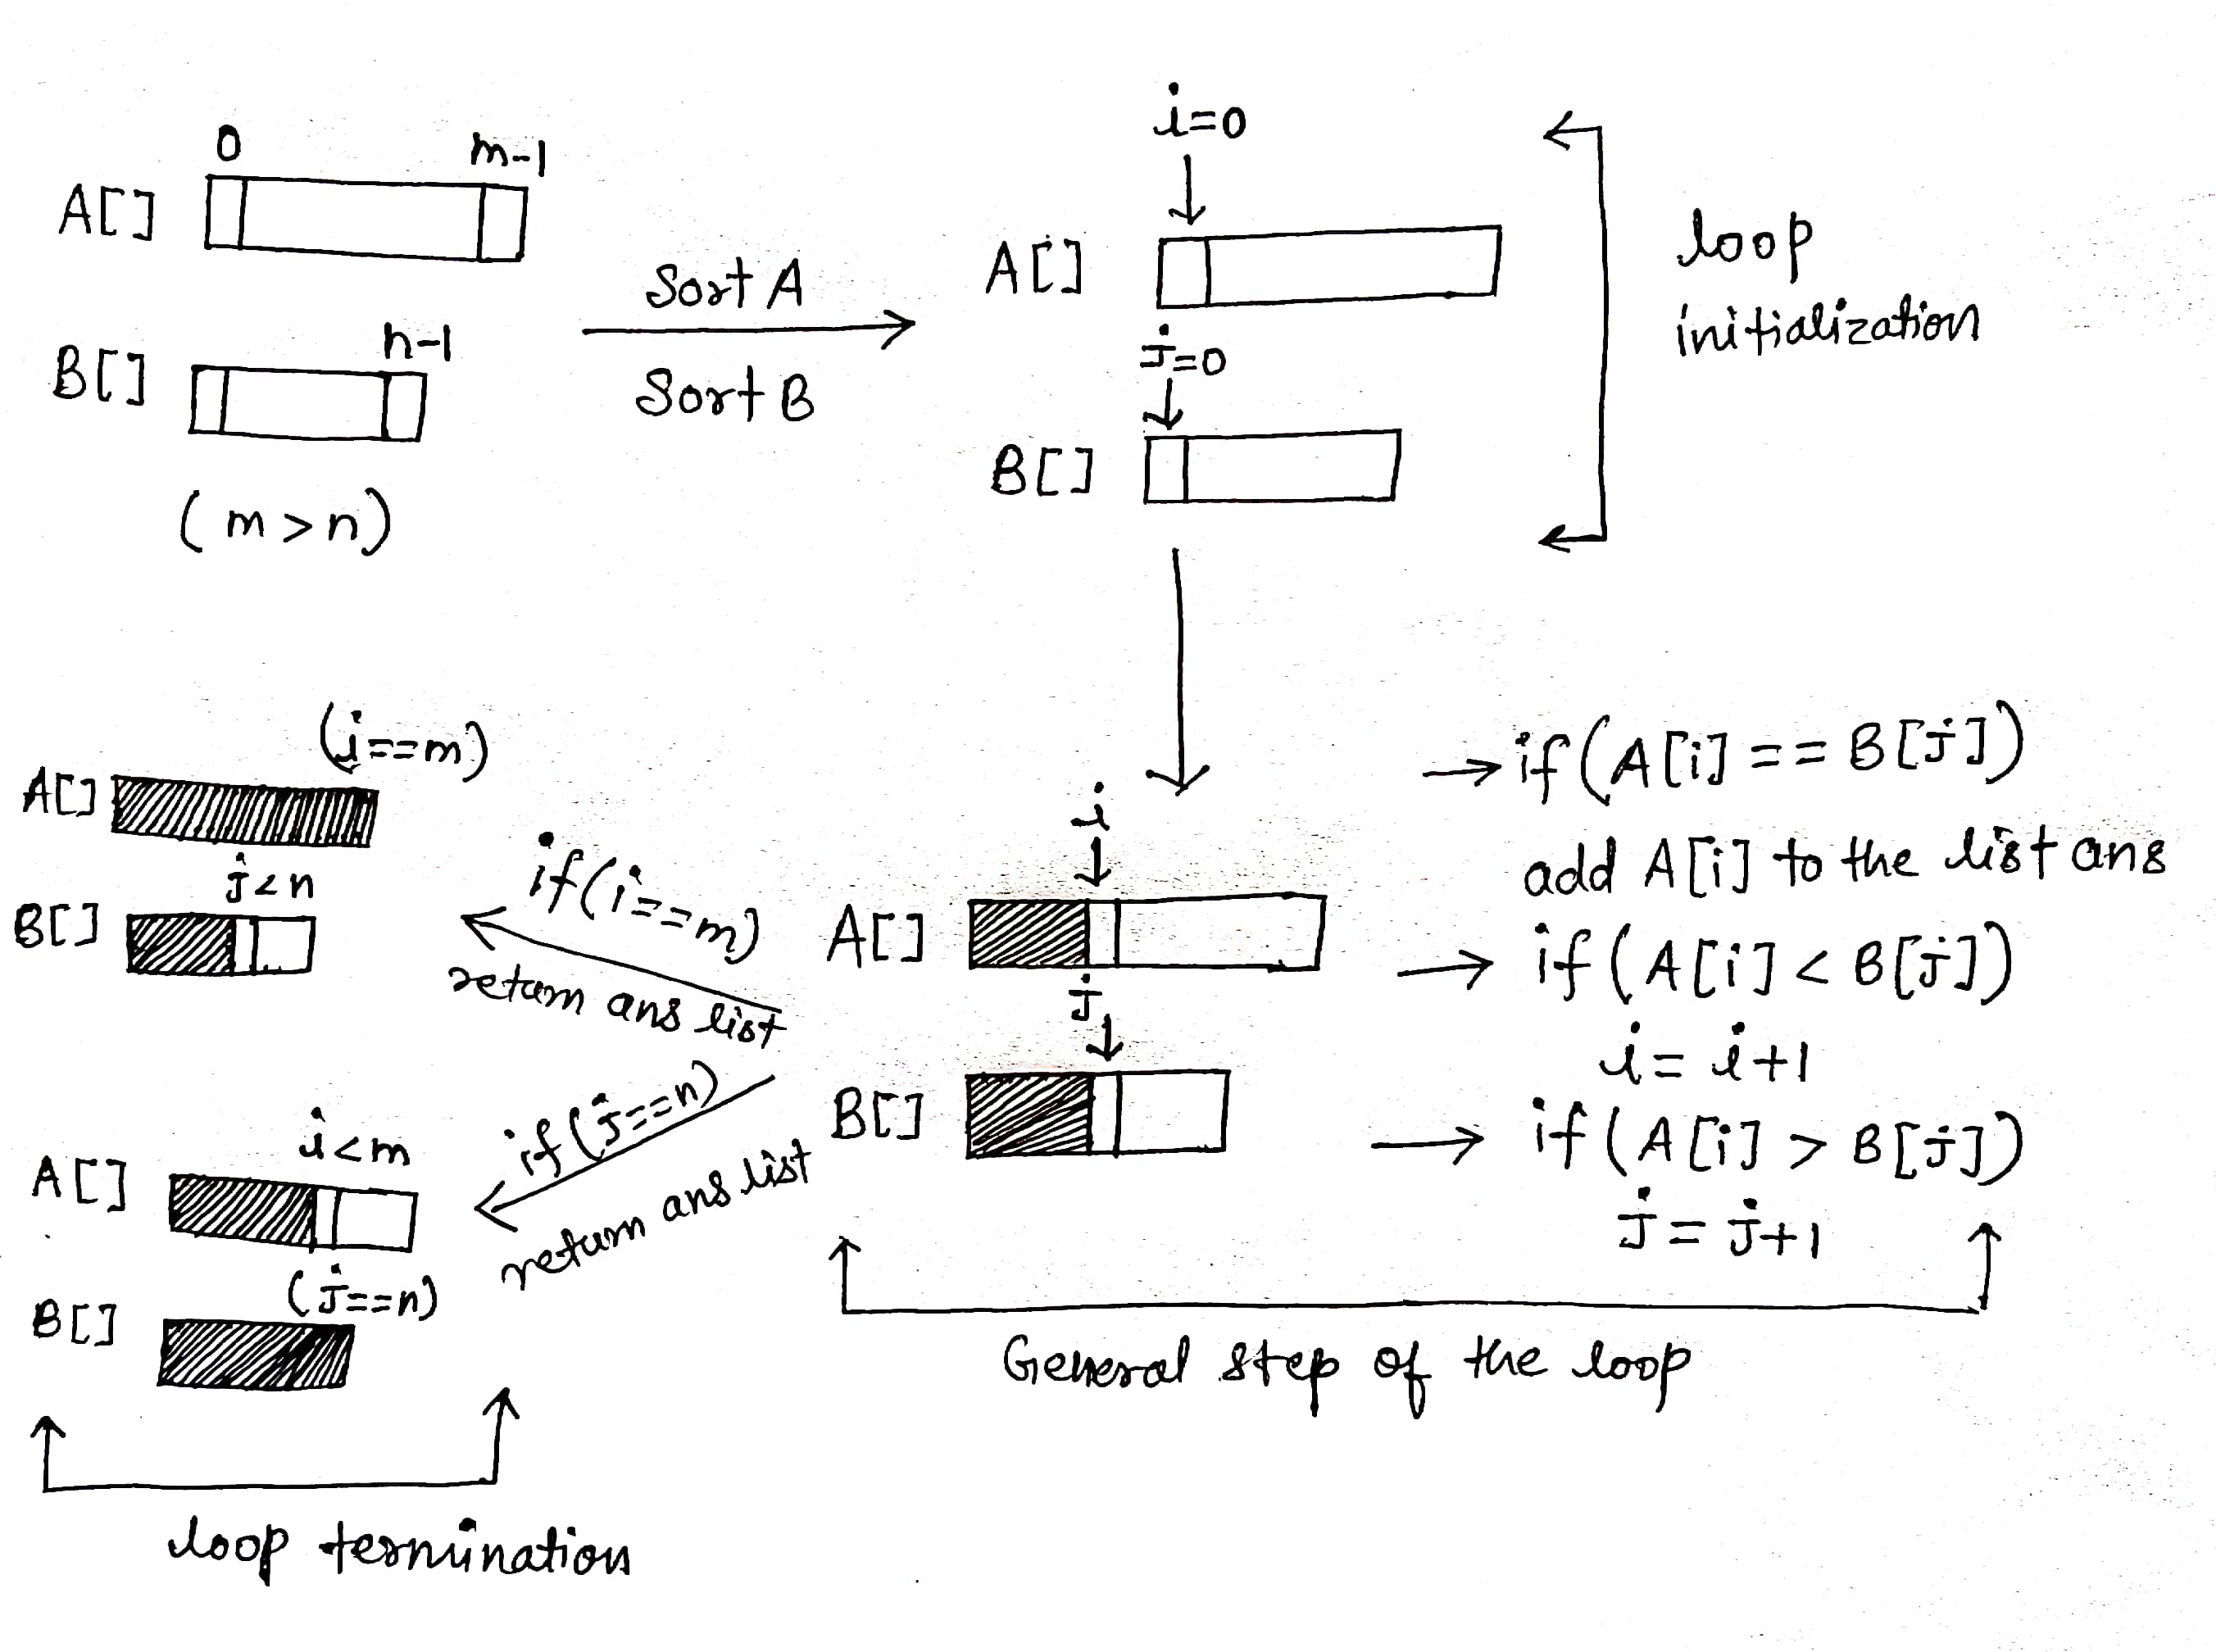 0 m-1
A[]
n-1
B[]
(m>n)
Sort A
Sort B
i=0
A[]
j=0
B[]
loop
initialization
i
A[]
j
B[]
→ if(A[i] == B[j])
add A[i] to the list ans
→ if(A[i] < B[j])
i = i+1
→ if(A[i] > B[j])
j = j+1
General step of the loop
if(i==m)
return ans list
if(j==n)
return ans list
(i==m)
A[]
j<n
B[]
i<m
A[]
(j==n)
B[]
loop termination